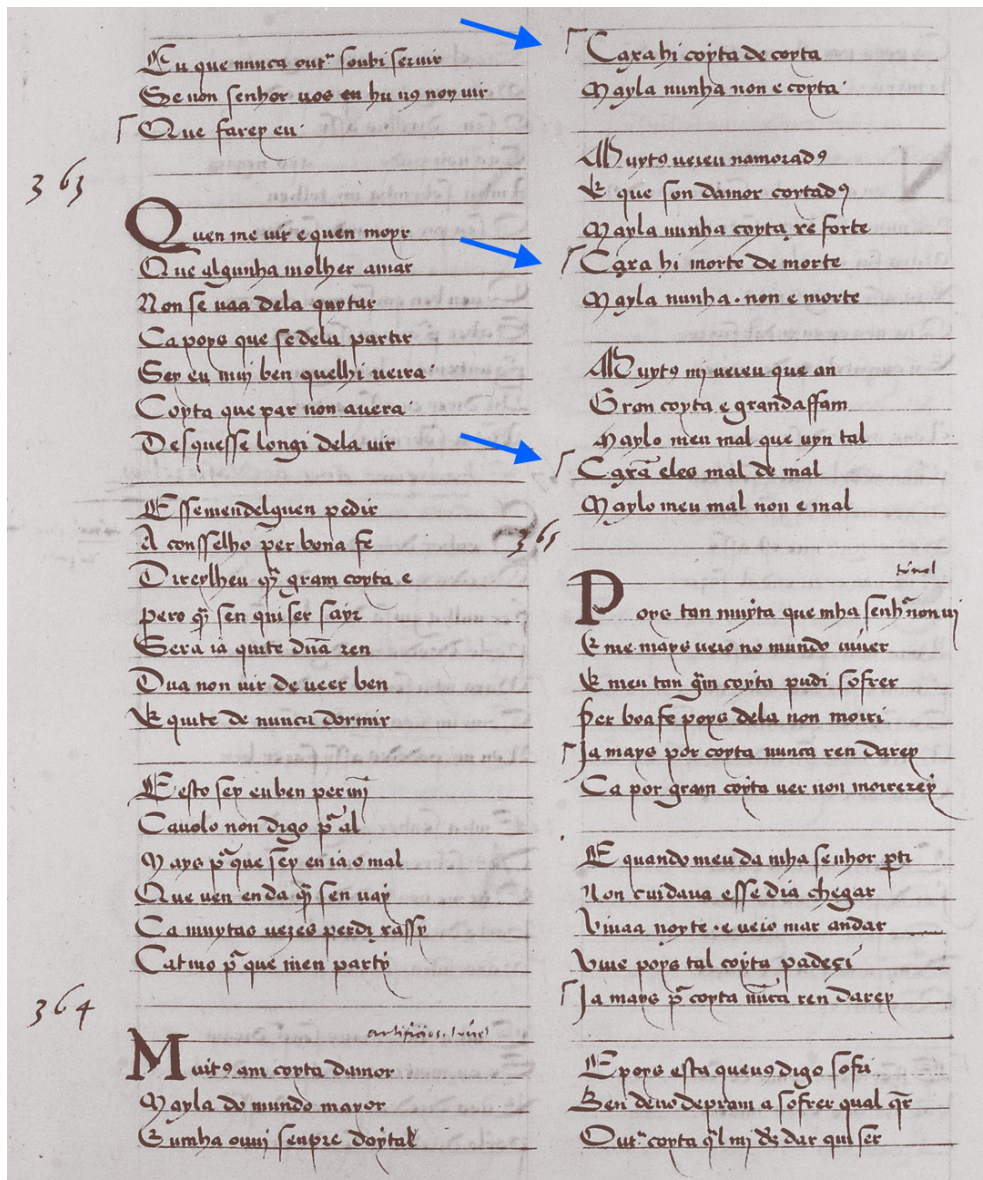 Eu que nunca outr͛ soubi seruir
Se non senhor uos en hu u9 non uir
Que farey eu
363
Quen me uir e quen moyr
Que algunha molher amar
Non se uaa dela quytar
Ca poys que se dela partir
Sey eu muj ben quelhi uerra
Coyta que par non auera
Desquesse longi dela uir
E ssemendelguen pedir
A consselho per bona fe
Direylheu q̄ gram coyta e
Pero q̄ sen quiser sayr
Sera ia quite dūa ren
Dua non uir de ueer ben
E quite de nunca dormir
E esto sey eu ben per mī
Ca uolo non digo p̄ al
Mays p̄ que sey en ia o mal
Que uen enda q̄ sen uay
Ca muytas uezes perdi rassy
Catiuo p̄ que men party
364
Muit9 am coyta damor
Mayla do mundo mayor
E umha ouuj senpre doytal
Ca xa hi coyta de coyta
Mayla nunha non e coyta
Muyt9 ueieu namorad9
E que son damor coytad9
Mayla nunha coyta xe forte
Ca xa hi morte de morte
Mayla nunha . non e morte
Muyt9 mi ueieu que an
Gran coyta e grandaffam
Maylo meu mal que uyn tal
Ca xā eles mal de mal
Maylo meu mal non e mal
365
tornel
Poys tan muyta que mha senh̄ non ui
E me mays ueio no mundo uiuer
E meu tan g̃m coyta pudi sofrer
Per boa fe poys dela non moiri
Ia mays por coyta nunca ren darey
Ca por gram coyta uer non moirerey
E quando meu da mha senhor p̄ti
Non cuidaua esse dia chegar
Viuaa noyte . e ueio mar andar
Viue poys tal coyta padeçi
Ia mays p̄ coyta nūca ren darey
E poys esta queu9 digo sofri
Ben deuo depram a sofrer qual q̄r
Outr͛ coyta q̄l mi d̄s dar quiser